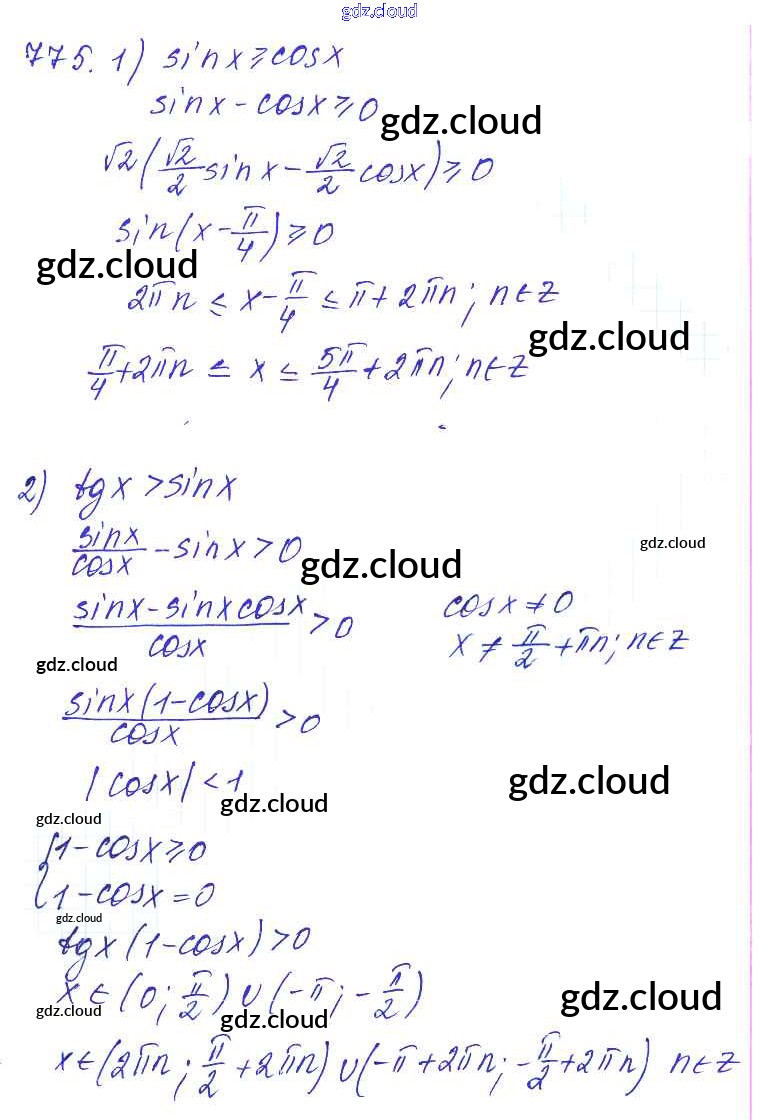 gdz.cloud
775. 1) sin x ⩾ cos x
sin x - cos x ⩾ 0
gdz.cloud
√2(√2/2 sin x - √2/2 cos x) ⩾ 0
sin(x - π/4) ⩾ 0
gdz.cloud
2πn ≤ x - π/4 ≤ π + 2πn; n∈Z
gdz.cloud
π/4 + 2πn ≤ x ≤ 5π/4 + 2πn; n∈Z
2) tg x > sin x
sin x/cos x - sin x > 0
gdz.cloud
gdz.cloud
(sin x - sin x cos x)/cos x > 0 cos x ≠ 0
x ≠ π/2 + πn; n∈Z
gdz.cloud
sin x (1 - cos x)/cos x > 0
|cos x| < 1
gdz.cloud
gdz.cloud
gdz.cloud
{1 - cos x ⩾ 0
1 - cos x = 0
gdz.cloud
tg x (1 - cos x) > 0
x ∈ (0; π/2) ∪ (-π; -π/2)
gdz.cloud
gdz.cloud
gdz.cloud
x ∈ (2πn; π/2 + 2πn) ∪ (-π + 2πn; -π/2 + 2πn) n∈Z